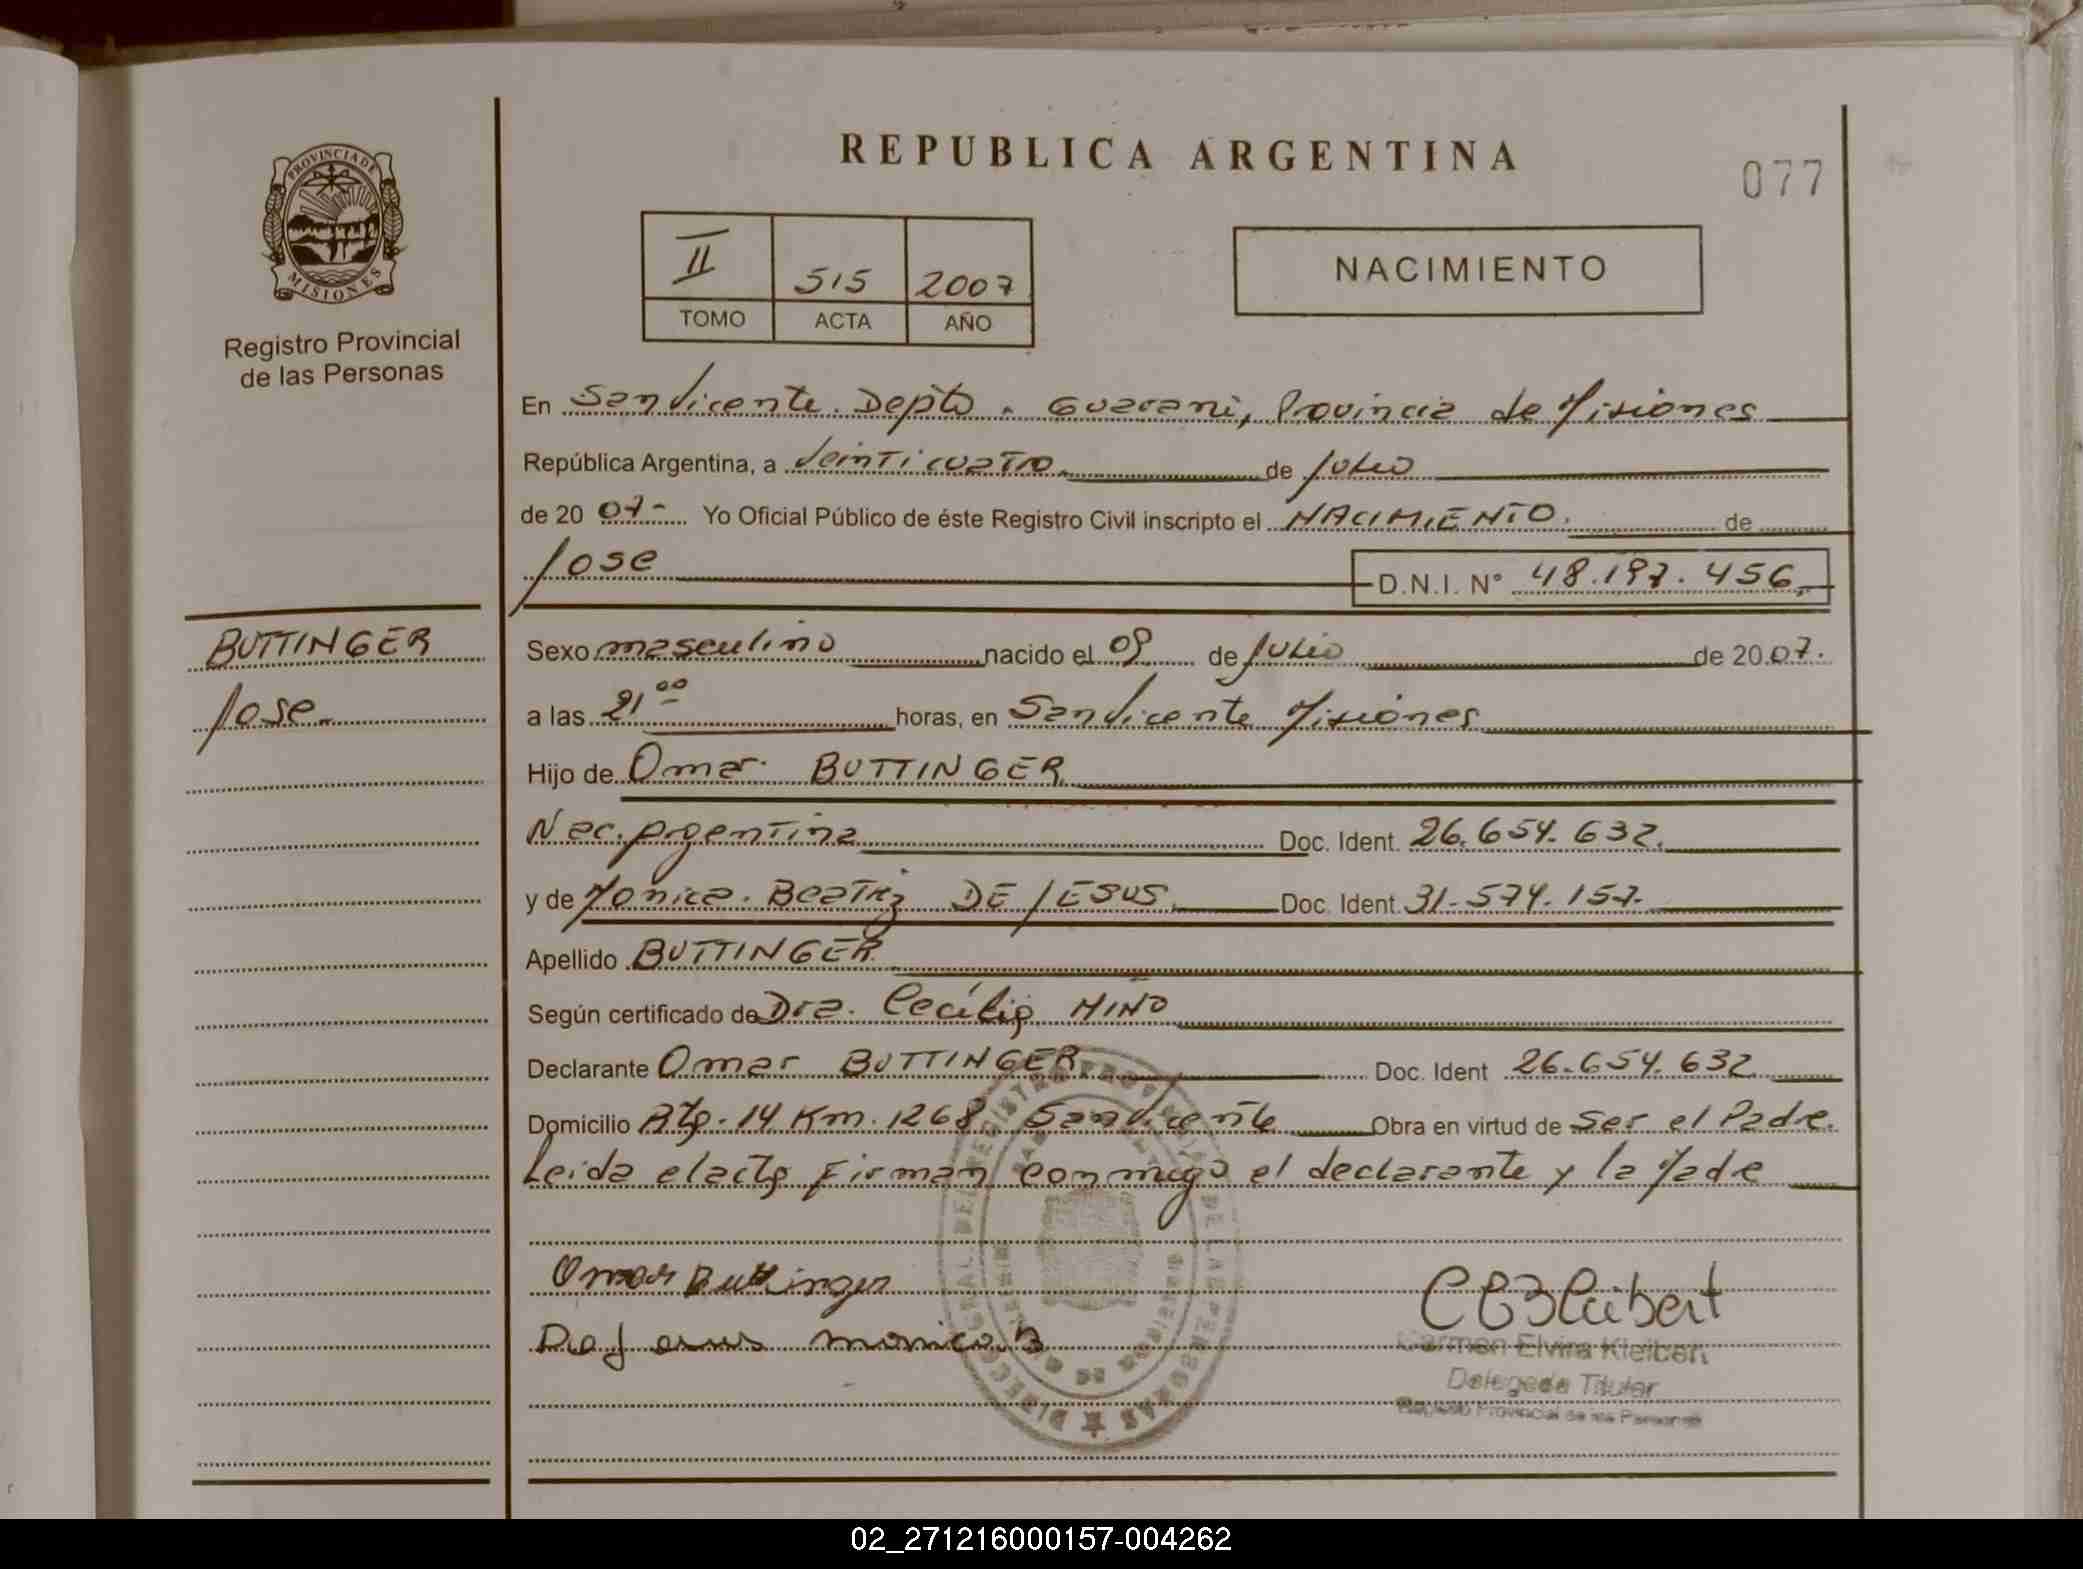 REPUBLICA ARGENTINA
077
PROVINCIA DE MISIONES
Registro Provincial
de las Personas
II 515 2007
TOMO ACTA AÑO
NACIMIENTO
En San Vicente Depto. Guarani, Provincia de Misiones
República Argentina, a Veinticuatro de Julio
de 20 07- Yo Oficial Público de éste Registro Civil inscripto el NACIMIENTO. de
Jose D.N.I. N° 48.197.456.
BUTTINGER
Jose
Sexo masculino nacido el 09 de Julio de 20 07.
a las 21 00 horas, en San Vicente Misiones
Hijo de Omar BUTTINGER
Nac. Argentina Doc. Ident. 26.654.632.
y de Monica Beatriz DE JESUS Doc. Ident. 31.574.157.
Apellido BUTTINGER
Según certificado de Dra. Cecilia MIÑO
Declarante Omar BUTTINGER Doc. Ident 26.654.632
Domicilio Rta. 14 Km. 1268 San Vicente Obra en virtud de Ser el Padre.
Leida el acta Firman conmigo el declarante y la Madre
Omar Buttinger
De Jesus monica B
Carmen Elvira Kleibert
Delegada Titular
Registro Provincial de las Personas
02_271216000157-004262